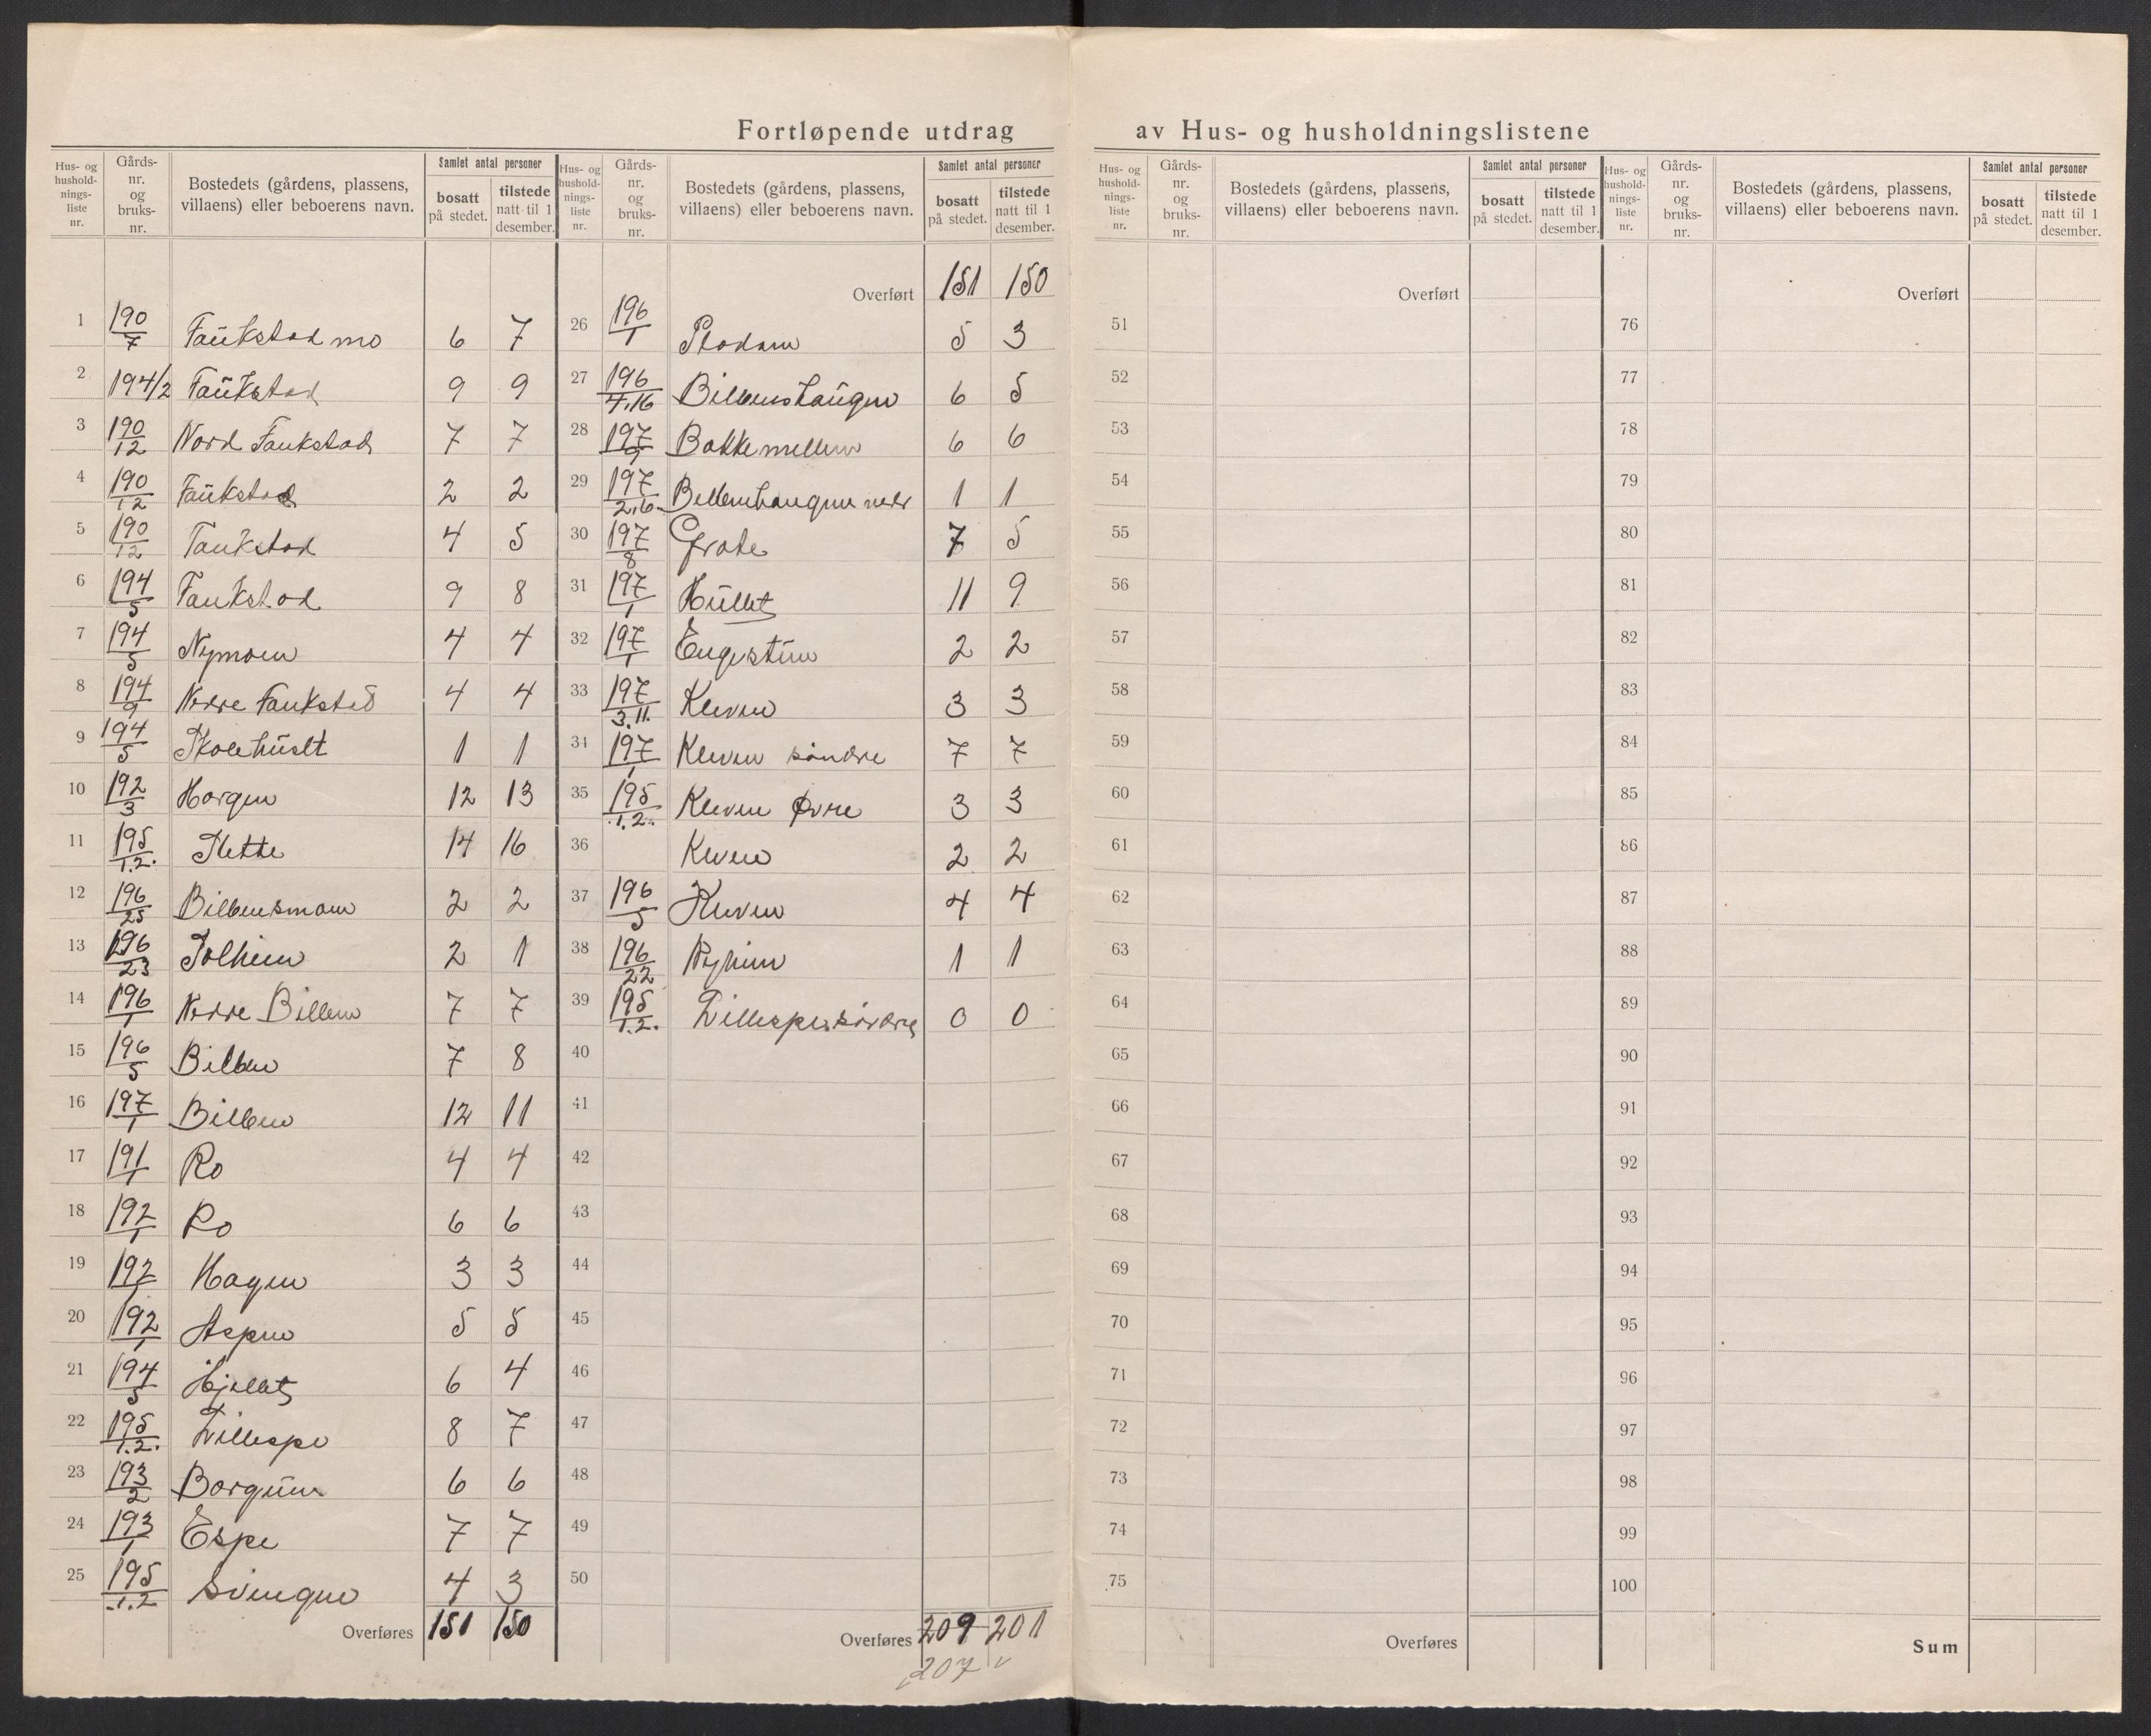 Fortløpende utdrag av Hus- og husholdningslistene
Hus- og hushold-nings-liste nr. Gårds-nr. og bruks-nr. Bostedets (gårdens, plassens, villaens) eller beboerens navn. Samlet antal personer bosatt på stedet. tilstede natt til 1 desember.
1 190/7 Faukstad mo 6 7
2 194/2 Faukstad 9 9
3 190/12 Nord Faukstad 7 7
4 190/12 Faukstad 2 2
5 190/12 Faukstad 4 5
6 194/5 Faukstad 9 8
7 194/5 Nymoen 4 4
8 194/9 Nerre Faukstad 4 4
9 194/5 Skolehuset 1 1
10 192/3 Horgen 12 13
11 195/1.2. Slette 14 16
12 196/25 Billensmoen 2 2
13 196/23 Solheim 2 1
14 196/1 Nerre Billen 7 7
15 196/5 Billen 7 8
16 197/1 Billen 12 11
17 191/1 Ro 4 4
18 192/1 Ro 6 6
19 192/1 Hagen 3 3
20 192/1 Aspen 5 5
21 194/5 Hjellet 6 4
22 195/1.2. Lillespe 8 7
23 193/2 Borgum 6 6
24 193/1 Espe 7 7
25 195/1.2 Svingen 4 3
Overføres 151 150
Hus- og hushold-nings-liste nr. Gårds-nr. og bruks-nr. Bostedets (gårdens, plassens, villaens) eller beboerens navn. Samlet antal personer bosatt på stedet. tilstede natt til 1 desember.
Overført 151 150
26 196/1 5 3
27 196/4.16 Billenshaugen 6 5
28 197/9 Bakkemellem 6 6
29 197/2.6. Billenhaugen nedr 1 1
30 197/8 Grote 7 5
31 197/1 Hullet 11 9
32 197/1 Engestun 2 2
33 197/3.11. Kleven 3 3
34 197/1 Kleven søndre 7 7
35 195/1.2. Kleven Øvre 3 3
36 Kleven 2 2
37 196/5 Kleven 4 4
38 196/22 Nyheim 1 1
39 195/1.2. Lillespe søndre 0 0
40
41
42
43
44
45
46
47
48
49
50
Overføres 209 201
207 v
Hus- og hushold-nings-liste nr. Gårds-nr. og bruks-nr. Bostedets (gårdens, plassens, villaens) eller beboerens navn. Samlet antal personer bosatt på stedet. tilstede natt til 1 desember.
Overført
51
52
53
54
55
56
57
58
59
60
61
62
63
64
65
66
67
68
69
70
71
72
73
74
75
Overføres
Hus- og hushold-nings-liste nr. Gårds-nr. og bruks-nr. Bostedets (gårdens, plassens, villaens) eller beboerens navn. Samlet antal personer bosatt på stedet. tilstede natt til 1 desember.
Overført
76
77
78
79
80
81
82
83
84
85
86
87
88
89
90
91
92
93
94
95
96
97
98
99
100
Sum